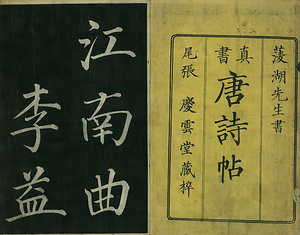 菱湖先生書
真書
唐詩帖
尾張 慶雲堂藏梓
江南曲
李益